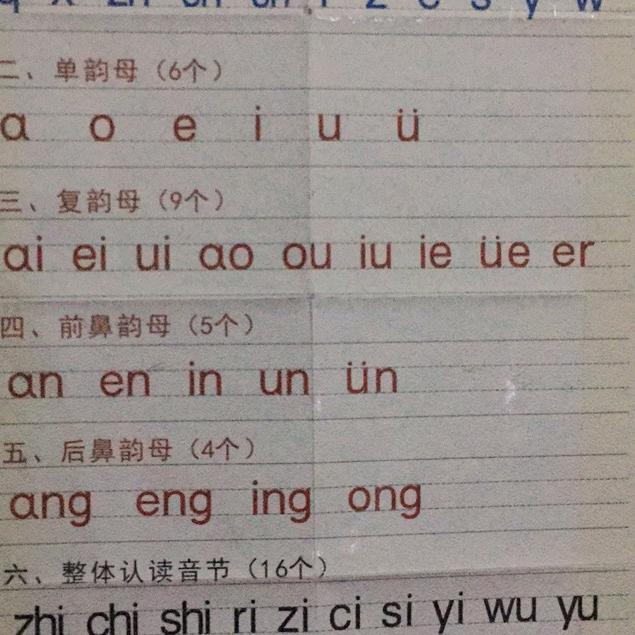 q x zh ch sh r z c s y w
二、单韵母（6个）
a o e i u ü
三、复韵母（9个）
ai ei ui ao ou iu ie üe er
四、前鼻韵母（5个）
an en in un ün
五、后鼻韵母（4个）
ang eng ing ong
六、整体认读音节（16个）
zhi chi shi ri zi ci si yi wu yu